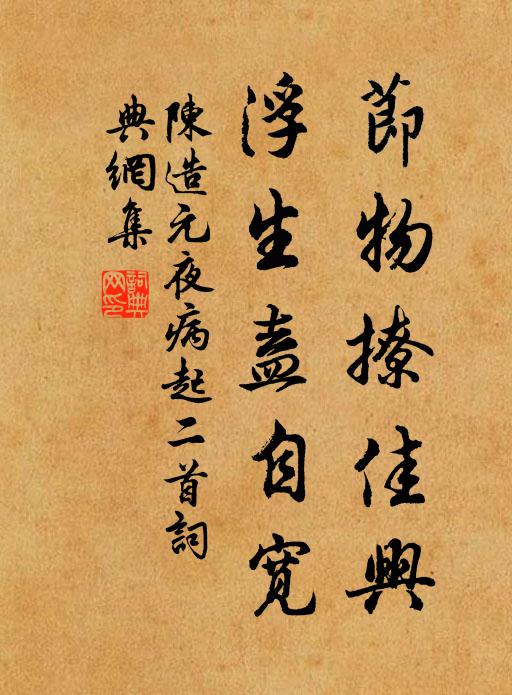 節物撩佳興
浮生盍自寬
陳造元夜病起二首詞
典網集
詞典網印